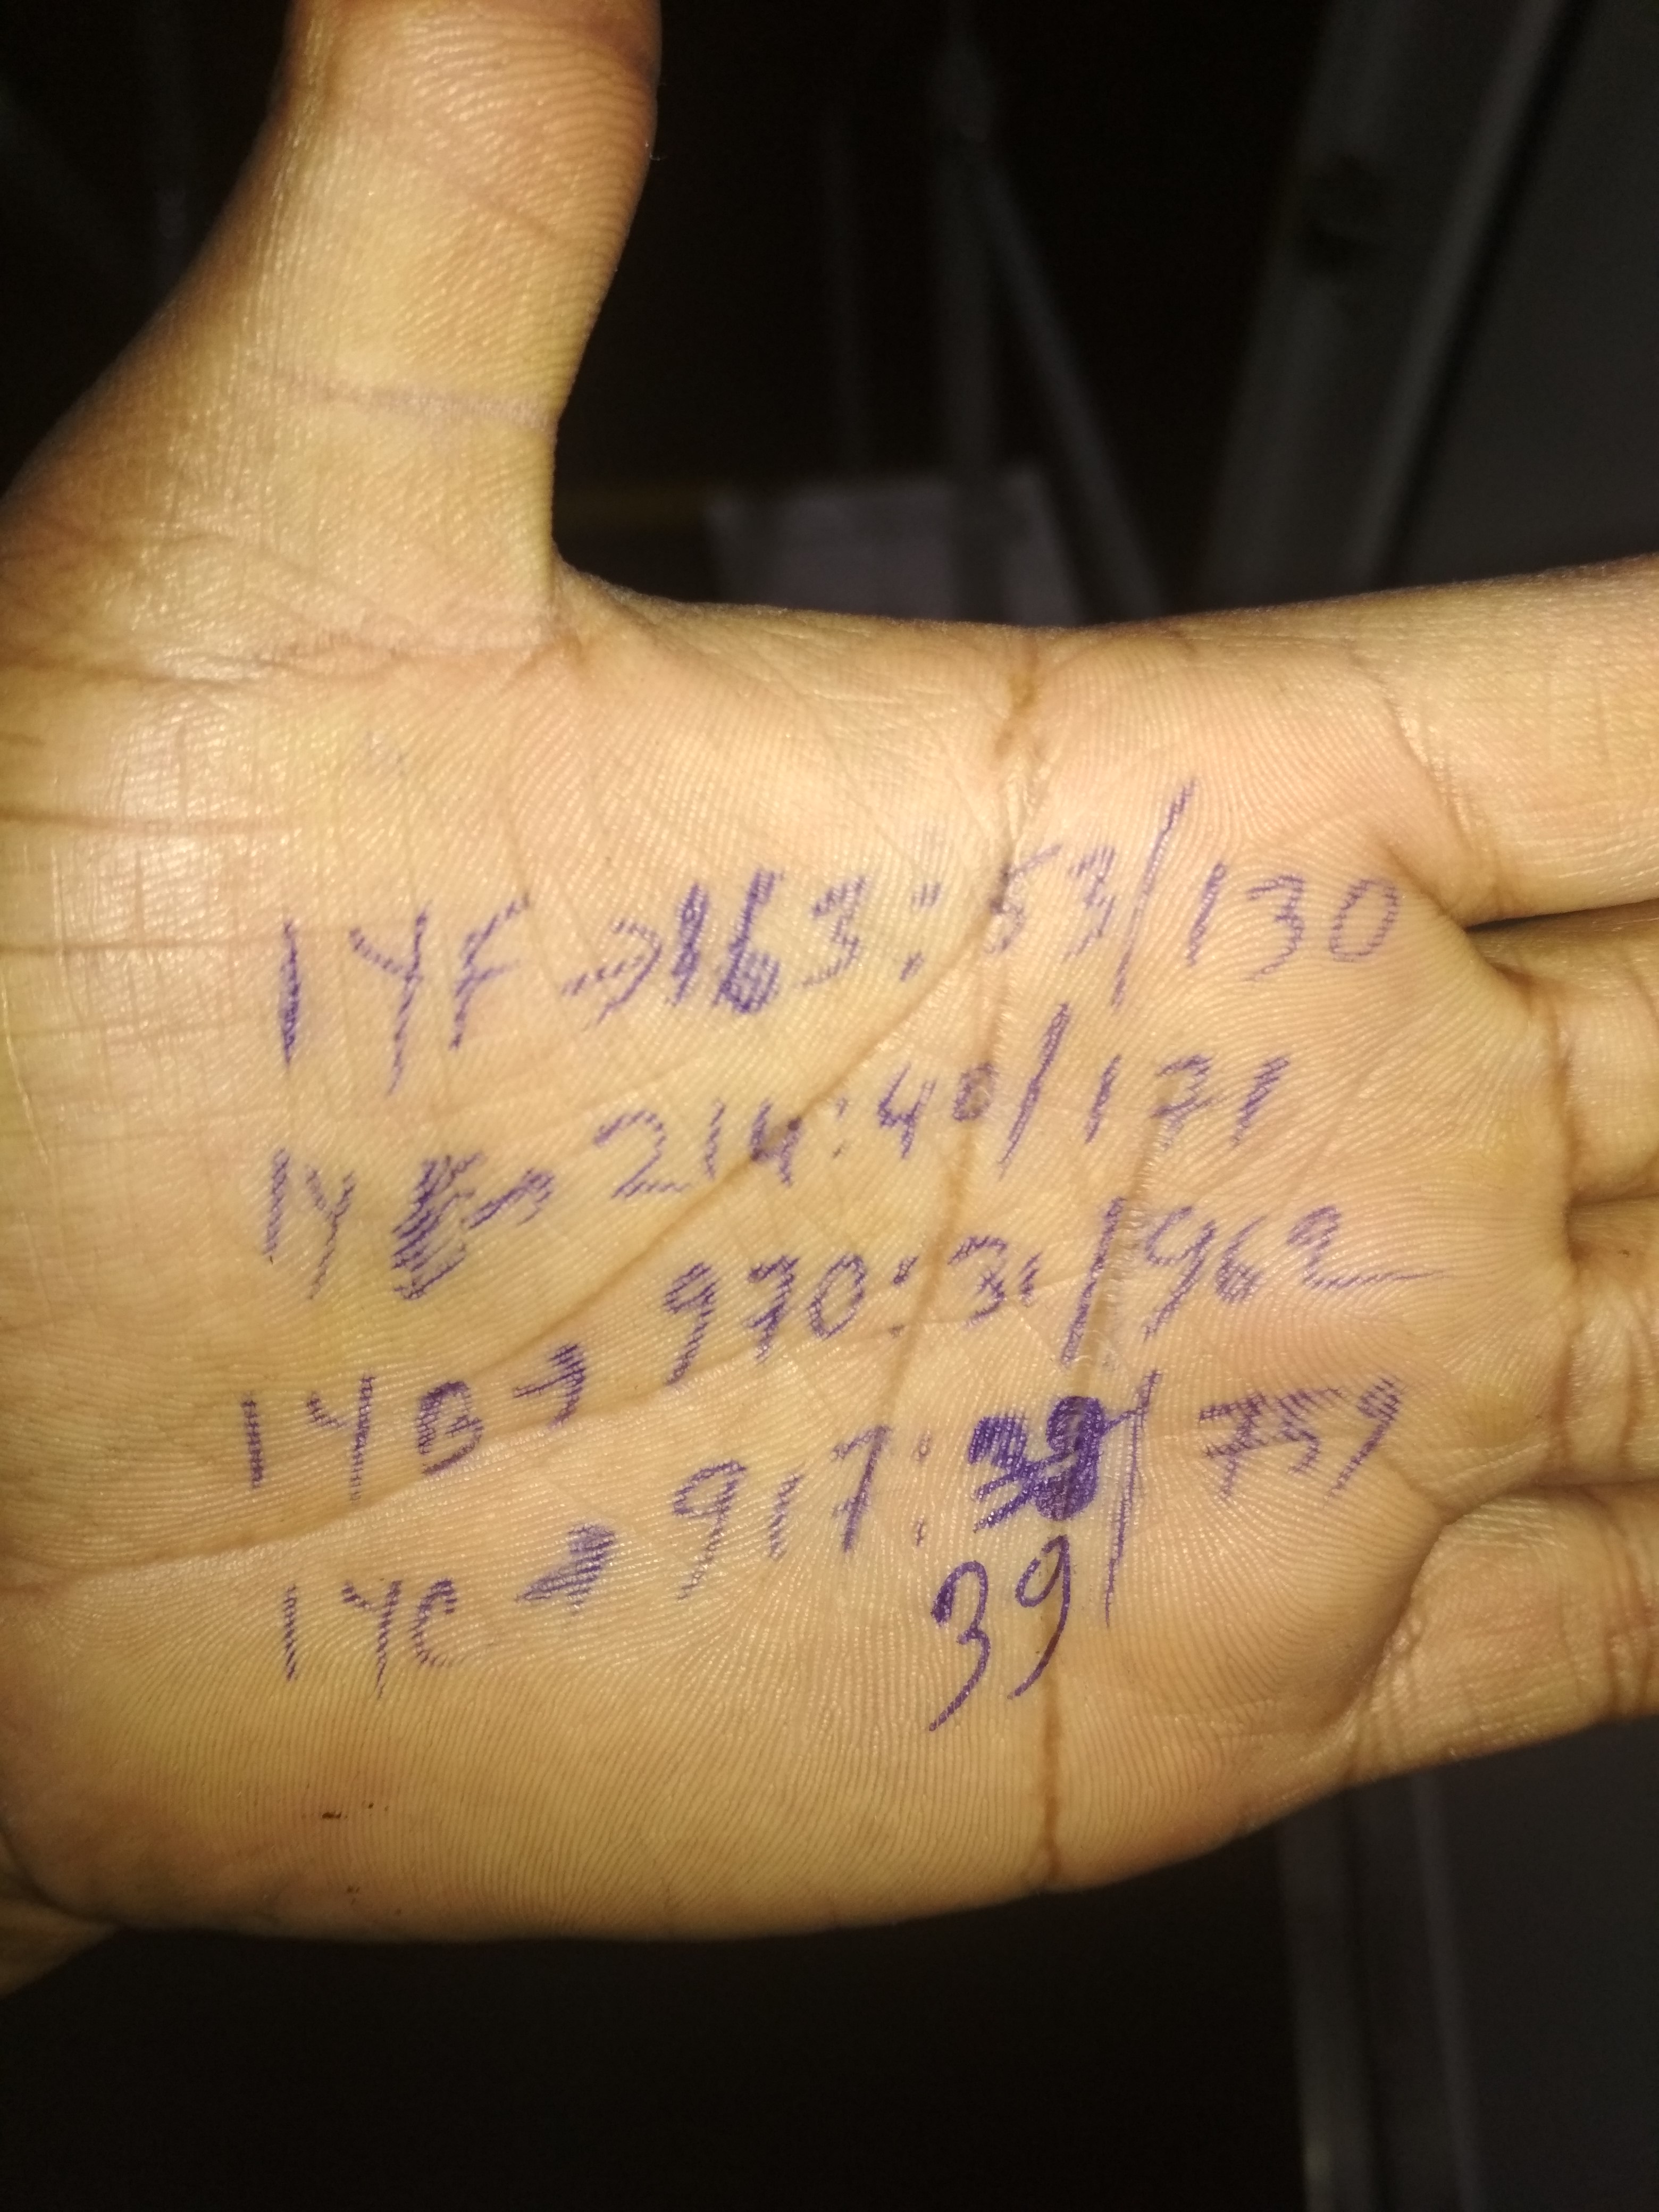 1YF → 163:53/130
1YE → 214:40/171
1YB → 970:31/962
1YC → 917: /759
39